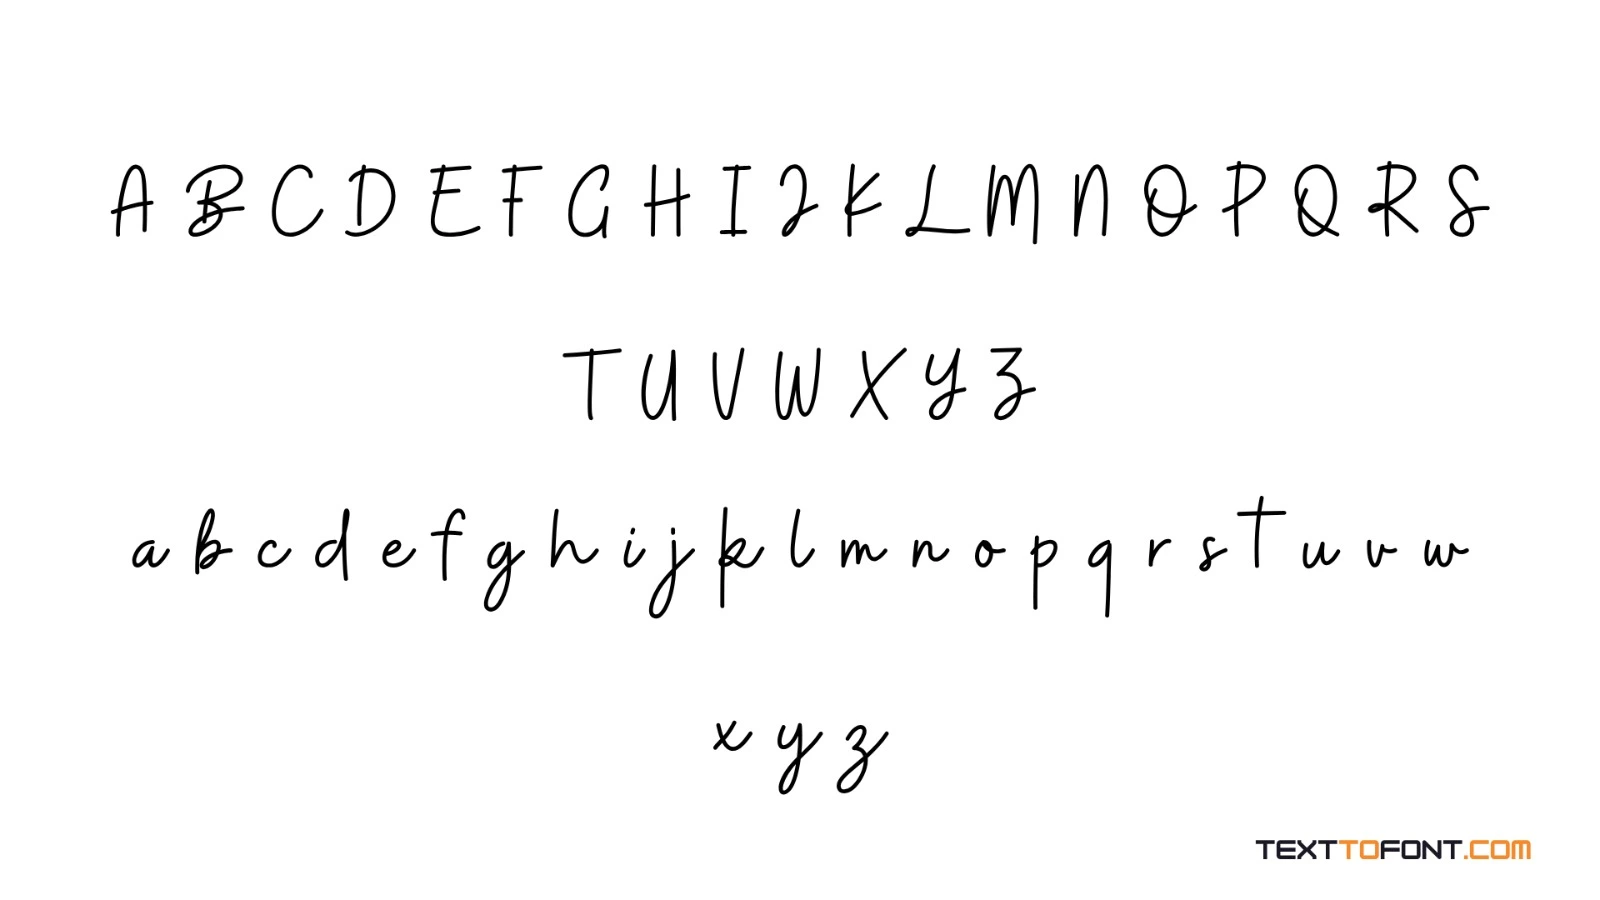 A B C D E F G H I J K L M N O P Q R S
T U V W X Y Z
a b c d e f g h i j k l m n o p q r s t u v w
x y z
TEXTTOFONT.COM